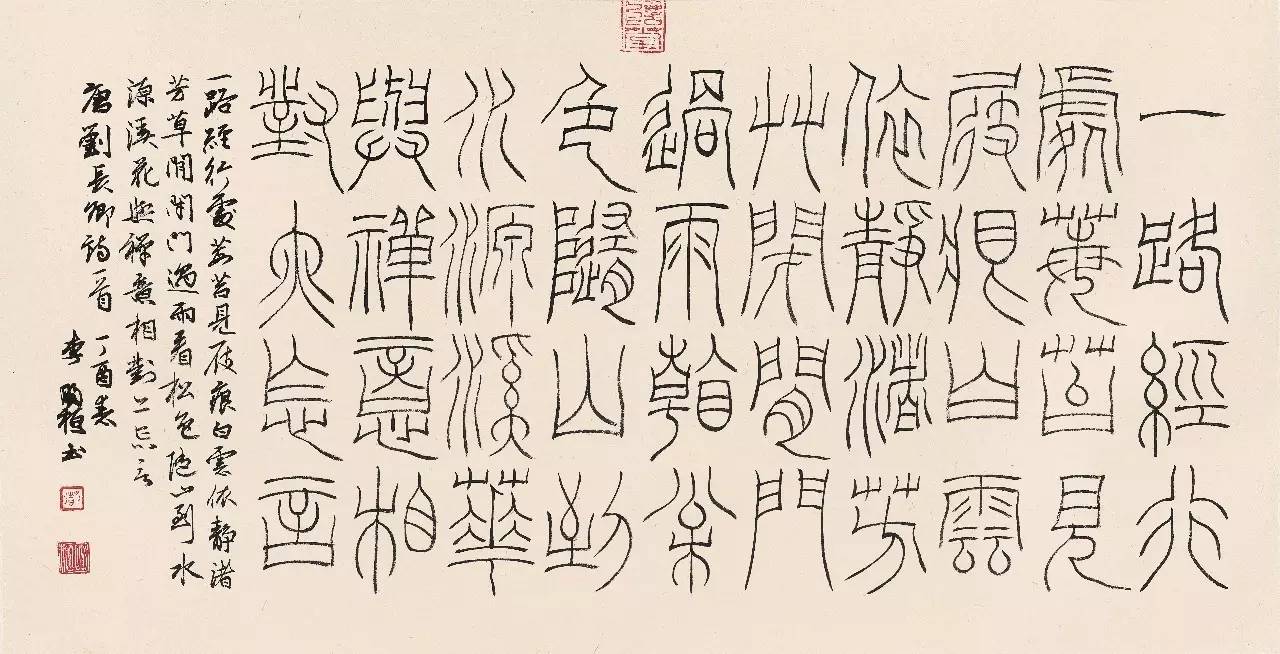 一路經行
處莓苔見
屐痕白雲
依靜渚芳
艸閉閒門
過雨看松
色隨山到
水源溪華
與禪意相
對亦忘言
一路經行處莓苔見屐痕白雲依靜渚
芳草閒閉門過雨看松色隨山到水
源溪花與禪意相對亦忘言
唐劉長卿詩一首 丁酉春
李 書